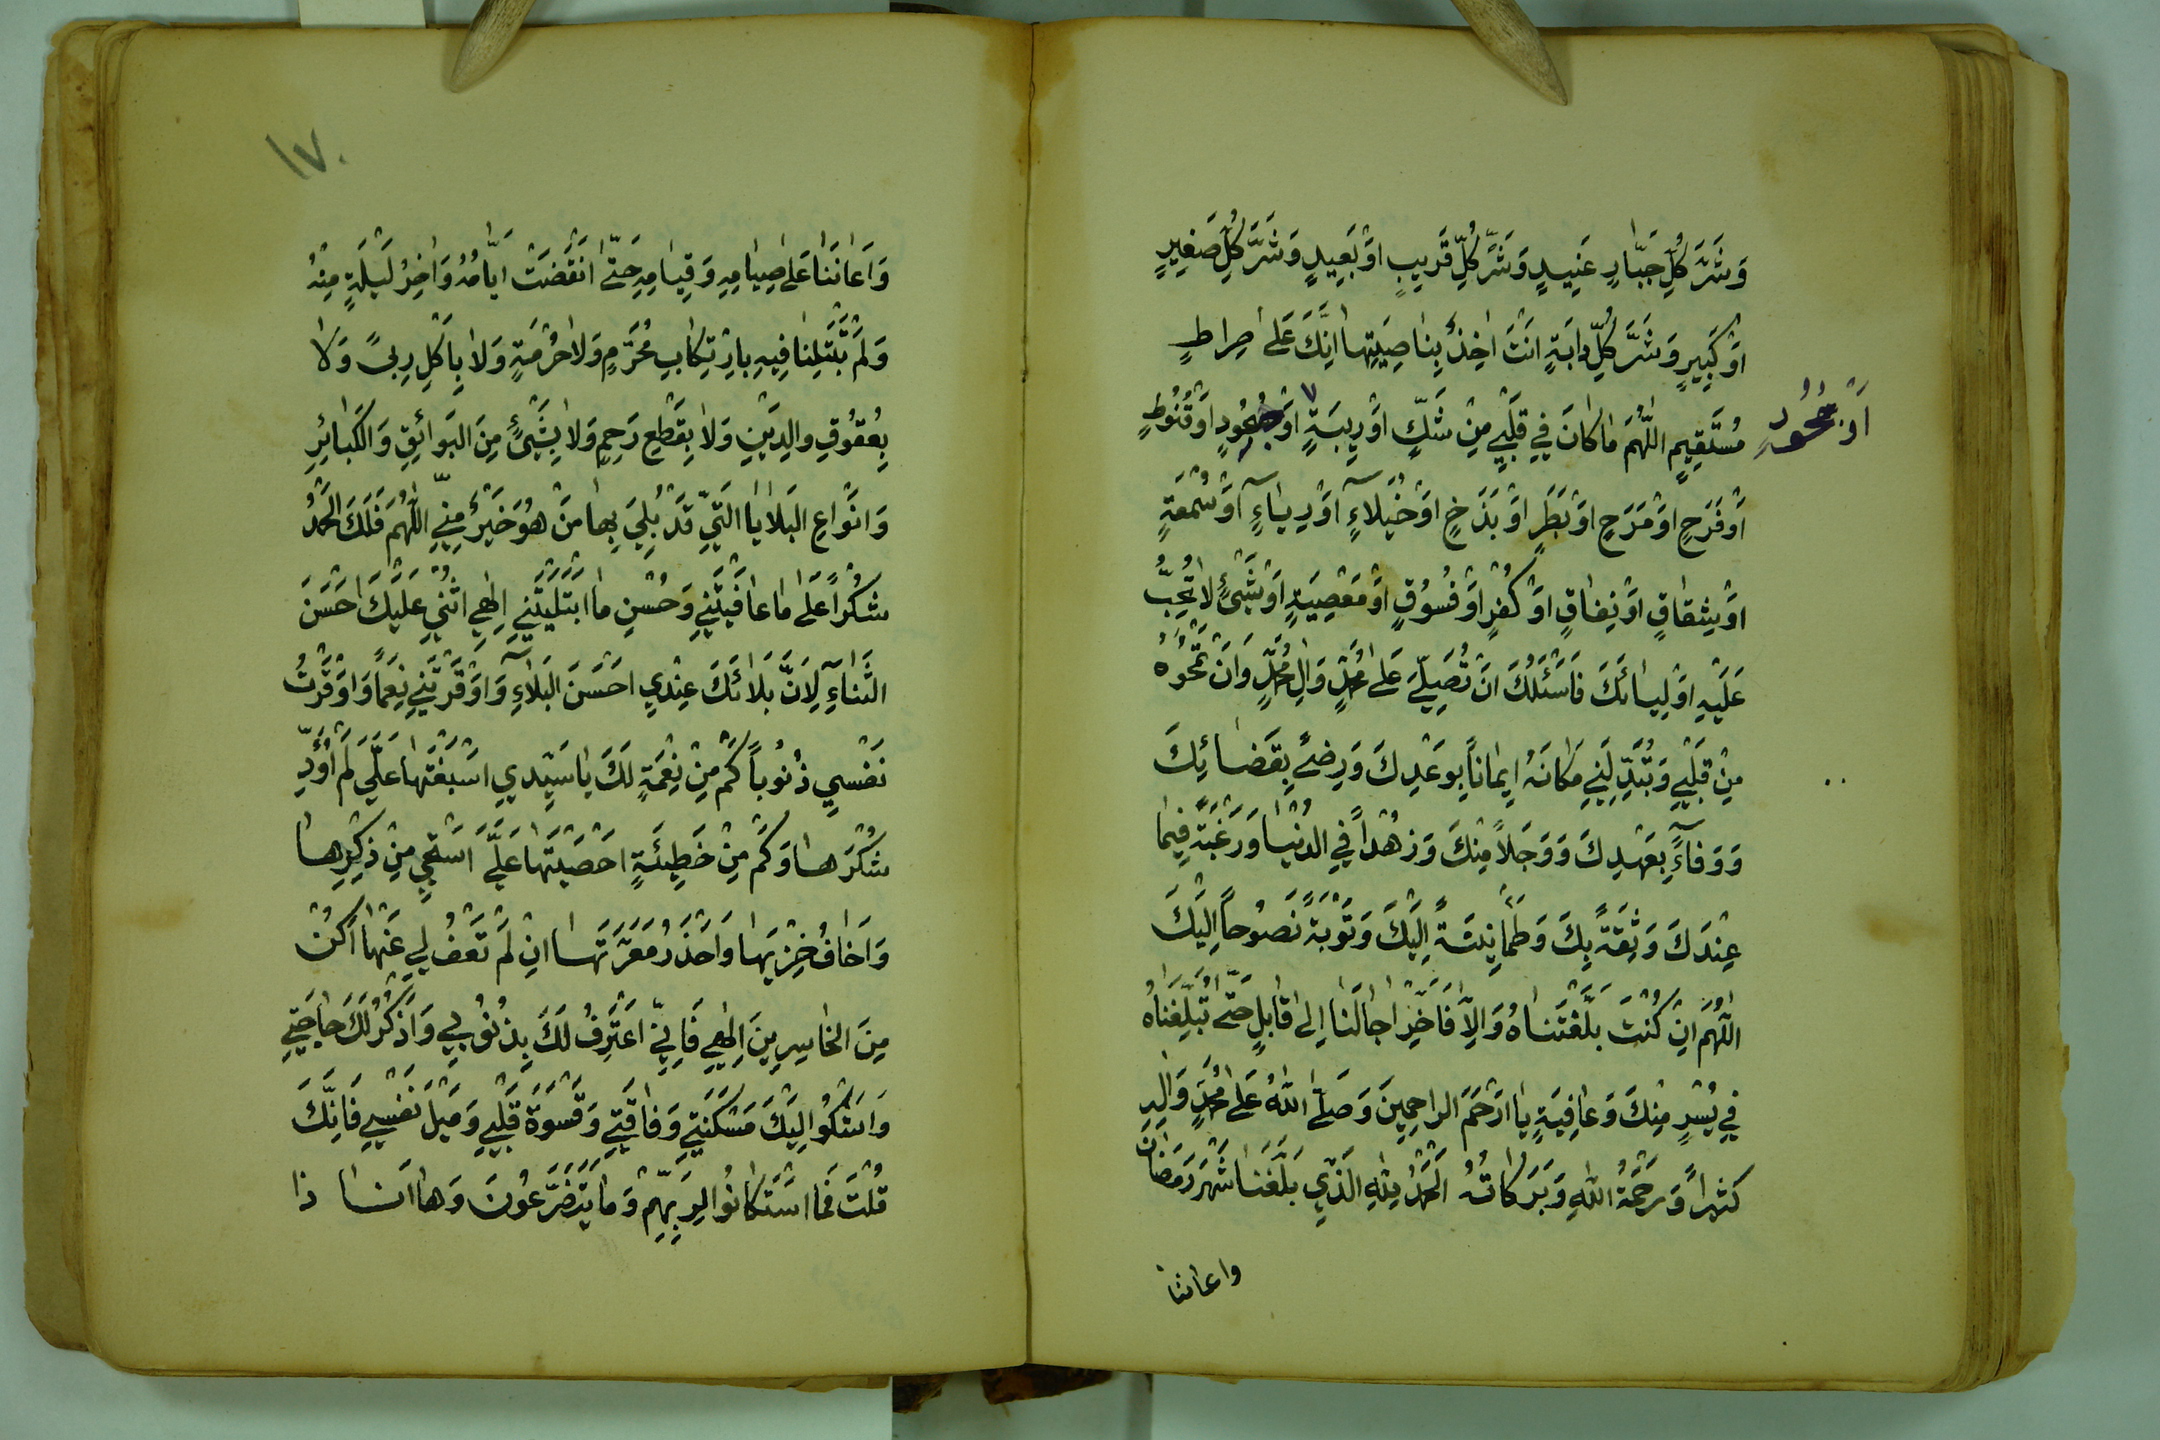 وَشَرَّ كُلِّ جَبّارٍ عَنِيدٍ وَشَرَّ كُلِّ قَرِيبٍ اَوْ بَعِيدٍ وَشَرَّ كُلِّ صَغِيرٍ
اَوْ كَبِيرٍ وَشَرَّ كُلِّ دابَةٍ اَنْتَ اخِذٌ بِناصِيَتِها اِنَّكَ عَلىٰ صِراطٍ
مُسْتَقِيمٍ اَللّٰهُمَ ما كانَ فِي قَلْبِي مِنْ شَكٍّ اَوْ رِيبَةٍ ٧ اَوْ جُحُودٍ اَوْ قُنُوطٍ
اَوْ جُحُودٍ
اَوْ فَرَحٍ اَوْ مَرَحٍ اَوْ بَطَرٍ اَوْ بَذَخٍ اَوْ خُيَلاۤءٍ اَوْ رِياۤءٍ اَوْ سُمْعَةٍ
اَوْ شِقاقٍ اَوْ نِفاقٍ اَوْ كُفْرٍ اَوْ فُسُوقٍ اَوْ مَعْصِيَةٍ اَوْ شَيْئٍ لا تُحِبُّ
عَلَيْهِ اَوْلِيائَكَ فَاَسْئَلُكَ اَنْ تُصَلِّيَ عَلىٰ مُحَمَّدٍ وَالِ مُحَمَّدٍ وَاَنْ تَمْحُوَهُ
مِنْ قَلْبِي وَتُبَدِّلَنِي مَكانَهُ اِيماناً بِوَعْدِكَ وَرِضىً بِقَضائِكَ
وَوَفاۤءً بِعَهْدِكَ وَوَجَلاً مِنْكَ وَزُهْداً فِي الدُنْيا وَرَغْبَةً فِيما
عِنْدَكَ وَثِقَةً بِكَ وَطُمَأْنِينَةً اِلَيْكَ وَتَوْبَةً نَصُوحاً اِلَيْكَ
اَللّٰهُمَ اِنْ كُنْتَ بَلَّغْتَناهُ وَاِلاّ فَاَخِّرْ اجالَنا اِلىٰ قابِلٍ حَتّىٰ تُبَلِّغَناهُ
فِي يُسْرٍ مِنْكَ وَعافِيَةٍ يا اَرْحَمَ الراحِمِينَ وَصَلَّى اللّٰهُ عَلىٰ مُحَمَّدٍ وَالِهِ
كَثِيراً وَرَحْمَةُ اللّٰهِ وَبَرَكاتُهُ اَلْحَمْدُ لِلّٰهِ الَّذِي بَلَّغَنا شَهْرَ رَمَضانَ
واعاننا
١٧٠
وَاَعانَنا عَلىٰ صِيامِهِ وَقِيامِهِ حَتّىٰ انْقَضَتْ اَيّامُهُ وَاخِرُ لَيْلَةٍ مِنْهُ
وَلَمْ تَبْتَلِنا فِيهِ بِارْتِكابِ مُحَرَّمٍ وَلا حُرْمَةٍ وَلا بِاَكْلِ رِبىً وَلا
بِعُقُوقِ والِدَيْنِ وَلا بِقَطْعِ رَحِمٍ وَلا بِشَيْئٍ مِنَ البَوائِقِ وَالكَبائِرِ
وَاَنْواعِ البَلايا الَتِي قَدْ بُلِيَ بِها مَنْ هُوَ خَيْرٌ مِنِّي اَللّٰهُمَ فَلَكَ الحَمْدُ
شُكْراً عَلىٰ ما عافَيْتَنِي وَحُسْنِ ما ابْتَلَيْتَنِي اِلٰهِي اُثْنِي عَلَيْكَ اَحْسَنَ
الثَناۤءِ لِاَنَّ بَلائَكَ عِنْدِي اَحْسَنَ البَلاۤءِ وَاَوْقَرْتَنِي نِعَماً وَاَوْقَرْتُ
نَفْسِي ذُنُوباً كَمْ مِنْ نِعْمَةٍ لَكَ يا سَيِّدِي اَسْبَغْتَها عَلَيَّ لَمْ اُؤَدِّ
شُكْرَها وَكَمْ مِنْ خَطِيئَةٍ اَحْصَيْتَها عَلَيَّ اَسْتَحِي مِنْ ذِكْرِها
وَاَخافُ خِزْيَها وَاَحْذَرُ مَعَرَّتَها اِنْ لَمْ تَعْفُ لِي عَنْها اَكُنْ
مِنَ الخاسِرِينَ اِلٰهِي فَاِنِّي اَعْتَرِفُ لَكَ بِذُنُوبِي وَاَذْكُرُ لَكَ حاجَتِي
وَاَشْكُوا اِلَيْكَ مَسْكَنَتِي وَفاقَتِي وَقَسْوَةَ قَلْبِي وَمَيْلَ نَفْسِي فَاِنَّكَ
قُلْتَ فَمَا اسْتَكانُوا لِرَبِّهِمْ وَما يَتَضَرَّعُونَ وَها اَنا ذا